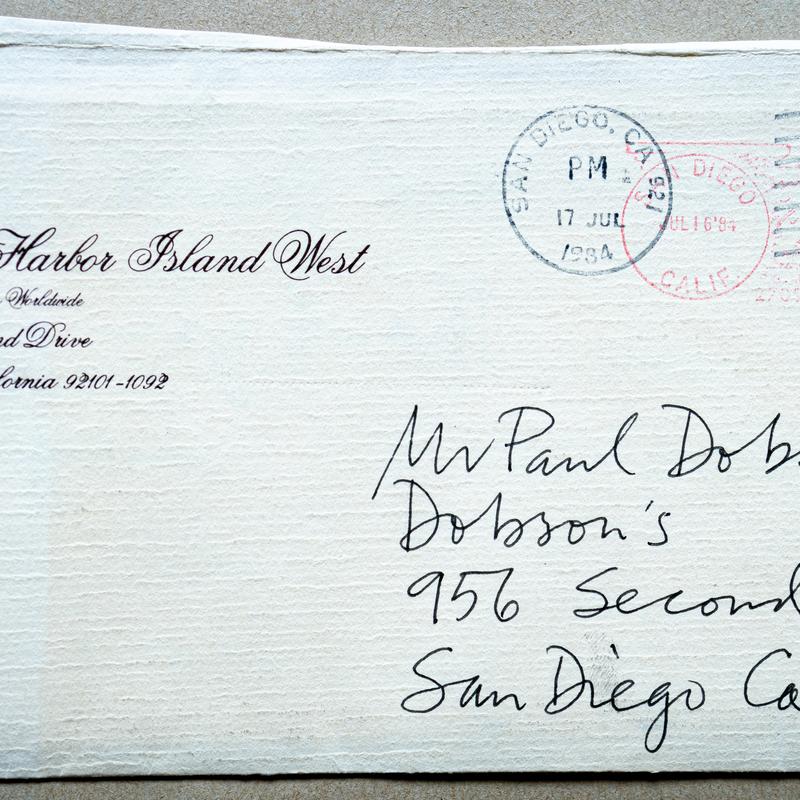 SAN DIEGO, CA 921
PM
17 JUL
1984
SAN DIEGO
JUL 16 '84
CALIF.
Harbor Island West
Worldwide
nd Drive
fornia 92101-1092
Mr Paul Dobs
Dobson's
956 Second
San Diego Ca